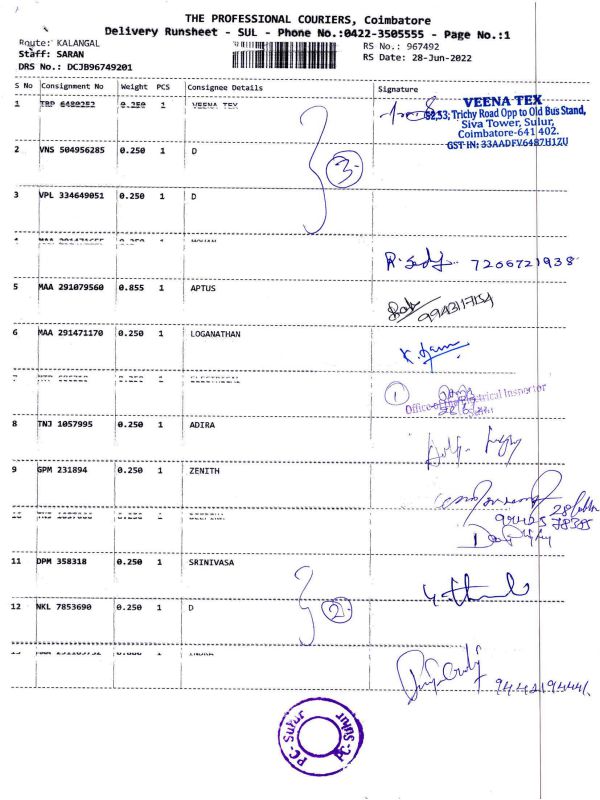 THE PROFESSIONAL COURIERS, Coimbatore
Delivery Runsheet - SUL - Phone No.:0422-3505555 - Page No.:1
Route: KALANGAL
RS No.: 967492
Staff: SARAN
RS Date: 28-Jun-2022
DRS No.: DCJB96749201
S No Consignment No Weight PCS Consignee Details Signature
1 TRP 6480252 0.250 1 VEENA TEX
VEENA TEX
52,53, Trichy Road Opp to Old Bus Stand,
Siva Tower, Sulur,
Coimbatore-641 402.
GST IN: 33AADFV6487H1ZU
2 VNS 504956285 0.250 1 D
3
3 VPL 334649051 0.250 1 D
4 MAA 291471655 0.250 1 MOHAN
7206721938
5 MAA 291079560 0.855 1 APTUS
9943117154
6 MAA 291471170 0.250 1 LOGANATHAN
7 1 ELECTRICAL
1
Office of the Electrical Inspector
8 TNJ 1057995 0.250 1 ADIRA
9 GPM 231894 0.250 1 ZENITH
10 0.250 1 DEEPIKA
11 DPM 358318 0.250 1 SRINIVASA
12 NKL 7853690 0.250 1 D
2
13 1 INDRA
PC-Sulur
PC-Sulur